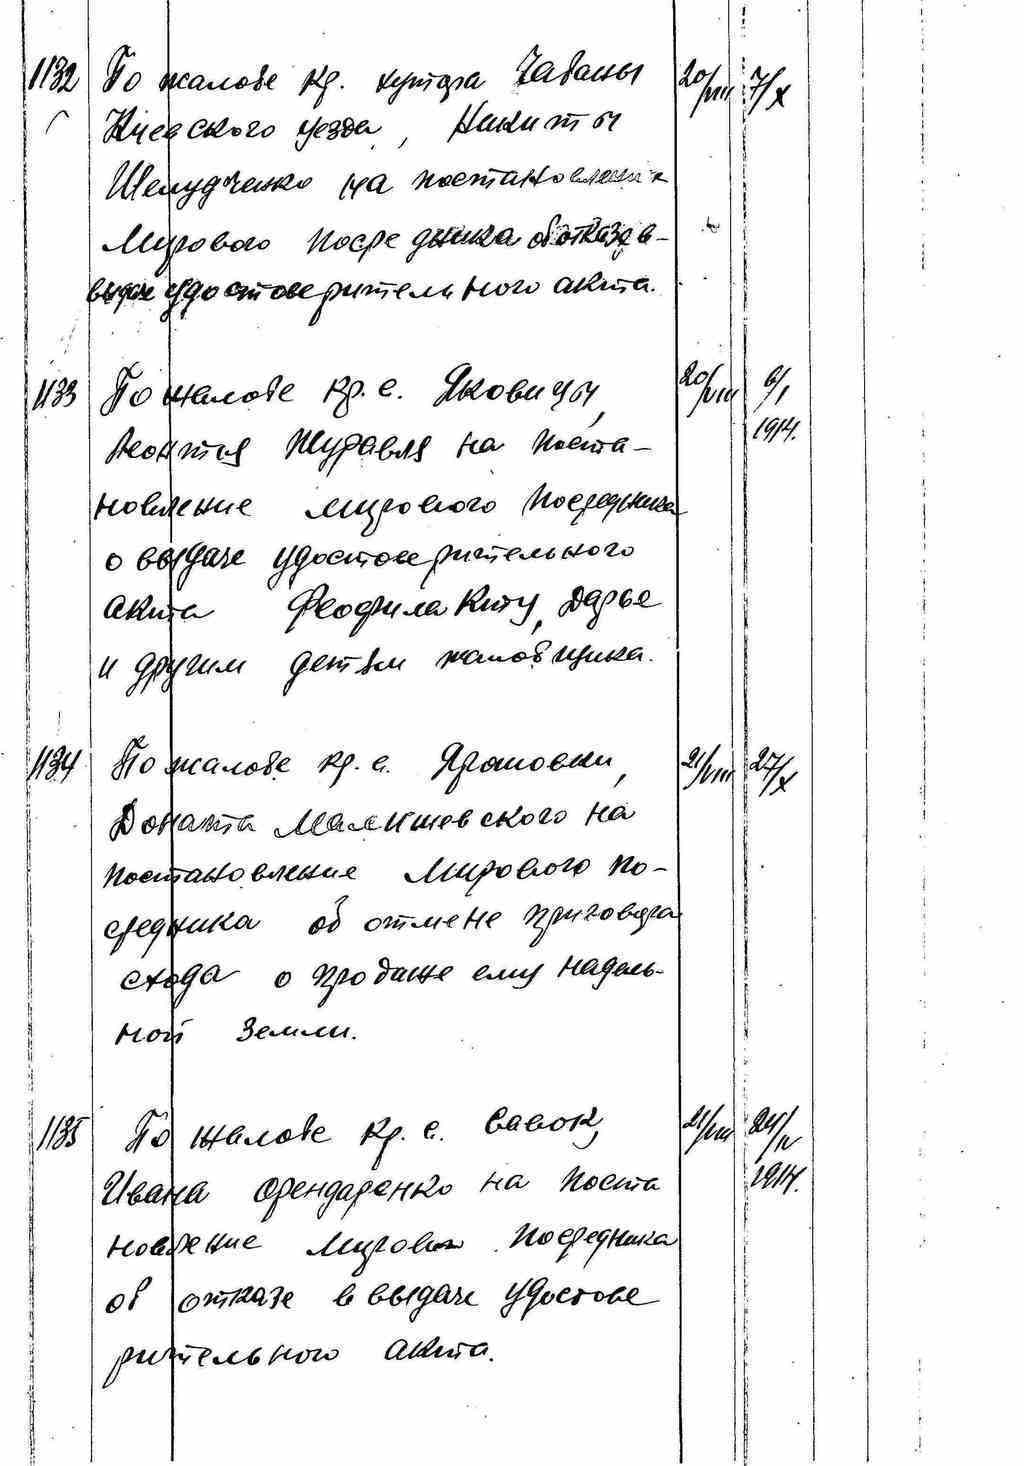 1132 По жалобе кр. хутора Чабаны 20/VIII 7/X
Киевского уезда, Никиты
Шелудченко на постановление
Мирового посредника об отказе в-
выдаче удостоверительного акта.
1133 По жалобе кр. с. Яковицы, 20/VIII 6/I
Леонтия Журавля на поста- 1914.
новление мирового посредника
о выдаче удостоверительного
акта Феофилакту, Дарье
и другим детям жалобщика.
1134 По жалобе кр. с. Ярошовки, 21/VIII 27/X
Доната Малишевского на
постановление Мирового по-
средника об отмене приговора
схода о продаже ему надель-
ной земли.
1135 По жалобе кр. с. Савок, 21/VIII 24/IV
Ивана Орендаренко на поста 1914.
новление Мирового посредника
об отказе в выдаче удостове
рительного акта.